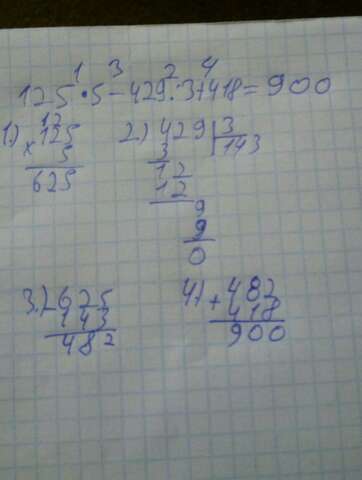 1 3 2 4
125 · 5 - 429 : 3 + 418 = 900
1.) 12
125
× 5
625
2.) 429 | 3
143
3
12
12
9
9
0
3.) - 625
143
482
4) + 482
418
900